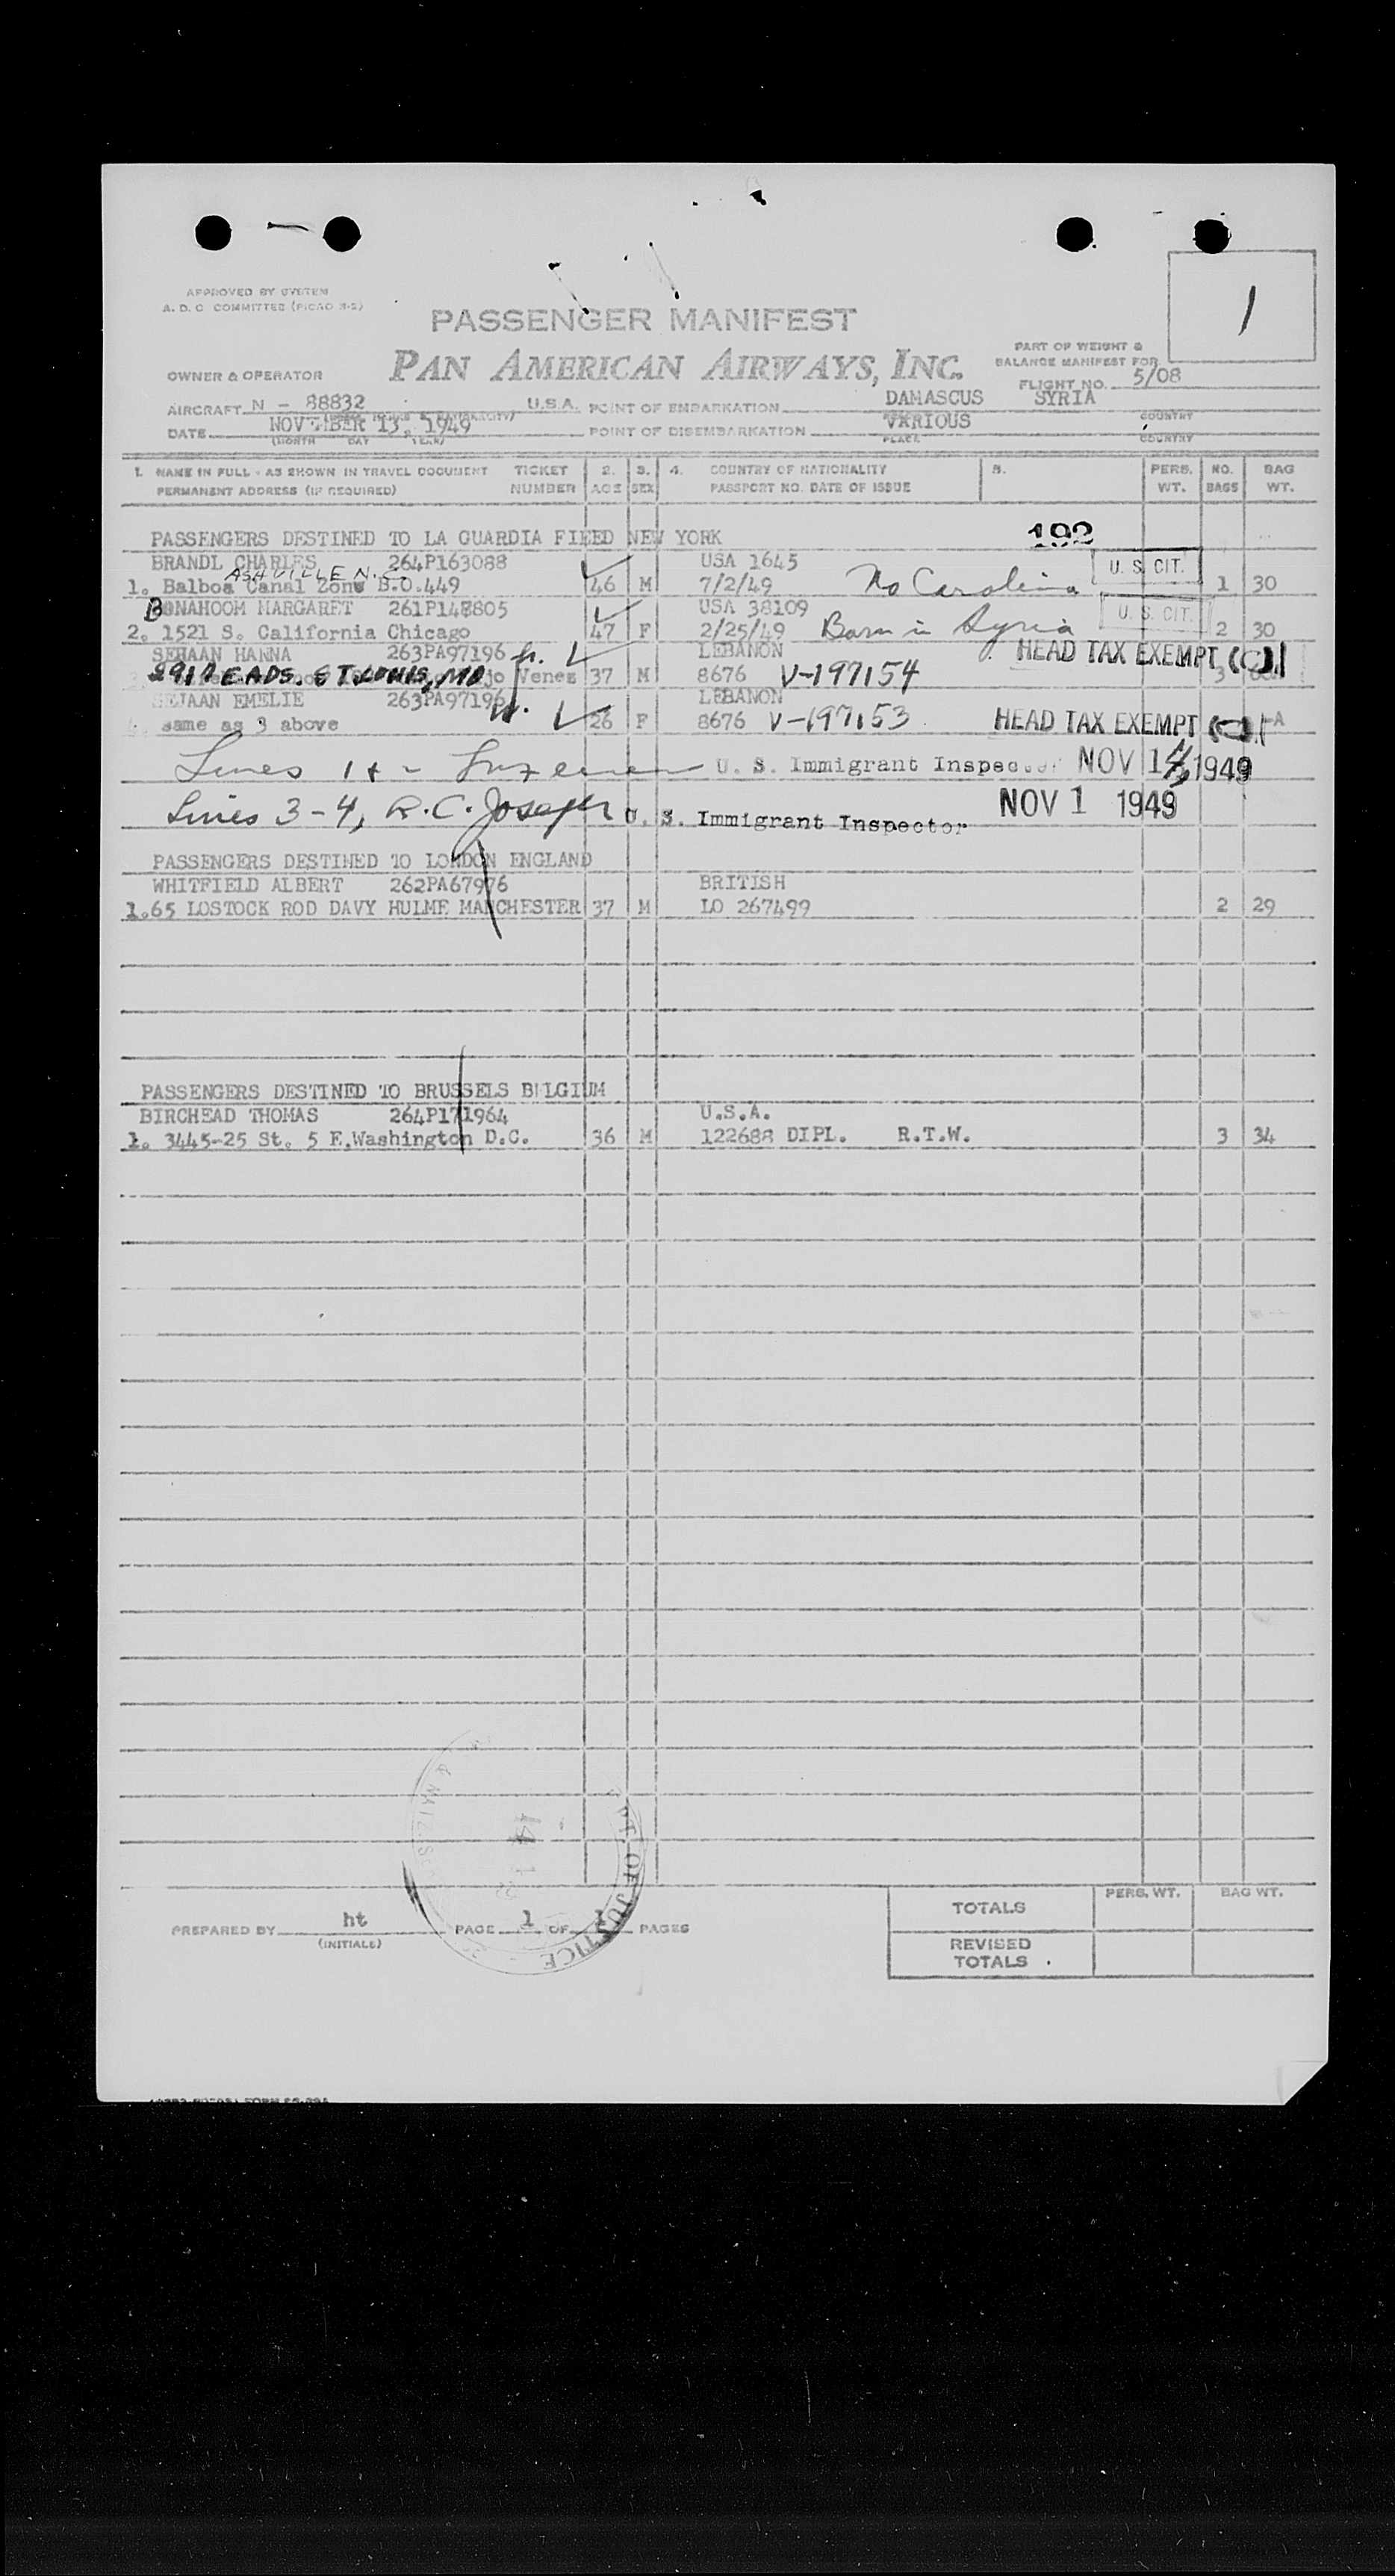 1
APPROVED BY SYSTEM
A. D. C COMMITTEE (PICAO
PASSENGER MANIFEST
PAN AMERICAN AIRWAYS, INC.
PART OF WEIGHT &
BALANCE MANIFEST FOR
OWNER & OPERATOR
FLIGHT NO. 5/08
AIRCRAFT N - 88832 U.S.A. POINT OF EMBARKATION DAMASCUS SYRIA
DATE NOVEMBER 13, 1949 POINT OF DISEMBARKATION VARIOUS COUNTRY
(MONTH DAY YEAR) PLACE COUNTRY
1. NAME IN FULL - AS SHOWN IN TRAVEL DOCUMENT TICKET 2. 3. 4. COUNTRY OF NATIONALITY 5. PERS. NO. BAG
PERMANENT ADDRESS (IF REQUIRED) NUMBER AGE SEX PASSPORT NO. DATE OF ISSUE WT. BAGS WT.
PASSENGERS DESTINED TO LA GUARDIA FIEED NEW YORK 192
BRANDL CHARLES 264P163088 USA 1645 U. S. CIT.
ASHVILLE N.C.
1. Balboa Canal Zone B.O.449 46 M 7/2/49 No Carolina 1 30
BONAHOOM MARGARET 261P148805 USA 38109 U. S. CIT.
2. 1521 S. California Chicago 47 F 2/25/49 Born in Syria 2 30
SEJAAN HANNA 263PA97196 LEBANON HEAD TAX EXEMPT (C).
2910 EADS. ST. LOUIS, MO. Venez 37 M 8676 V-197154 3
SEJAAN EMELIE 263PA97196 LEBANON
4. same as 3 above W. 26 F 8676 V-197153 HEAD TAX EXEMPT
Lines 1 + 2 U. S. Immigrant Inspector NOV 14 1949
Lines 3-4, R.C. Joseph U. S. Immigrant Inspector NOV 1 1949
PASSENGERS DESTINED TO LONDON ENGLAND
WHITFIELD ALBERT 262PA67976 BRITISH
1.65 LOSTOCK ROD DAVY HULME MANCHESTER 37 M LO 267499 2 29
PASSENGERS DESTINED TO BRUSSELS BELGIUM
BIRCHEAD THOMAS 264P171964 U.S.A.
1. 3445-25 St. 5 E.Washington D.C. 36 M 122688 DIPL. R.T.W. 3 34
14
OF JUSTICE
PERS. WT. BAG WT.
TOTALS
PREPARED BY ht PAGE 1 OF 1 PAGES
(INITIALS)
REVISED
TOTALS